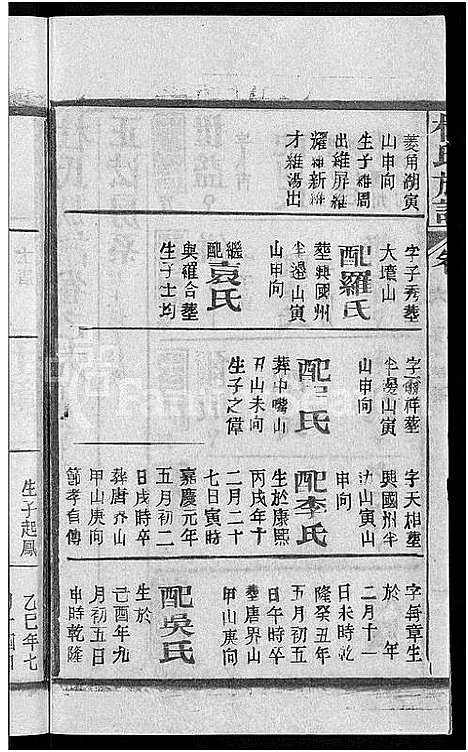 菱角湖寅
山申向
生子維周
出維屏維
耀維新維
才維湯出
字子秀塟
大墳山
配羅氏
塟興國州
半邊山寅
山申向
繼配袁氏
與羅合塟
生子士均
祥塟
半邊山寅
山申向
氏
葬中嘴山
丑山未向
生子之偉
字天相塟
興國州半
邊山寅山
申向
配李氏
生於康熙
丙戌年十
二月二十
七日寅時
嘉慶元年
五月初二
日戌時卒
葬唐界山
甲山庚向
節孝有傳
字舜章生
於年
二月十一
日未時乾
隆癸丑年
五月初五
日午時卒
塟唐界山
甲山庚向
配吳氏
生於
己酉年九
月初五日
申時乾隆
生子起鳳
乙巳年七
氏族譜